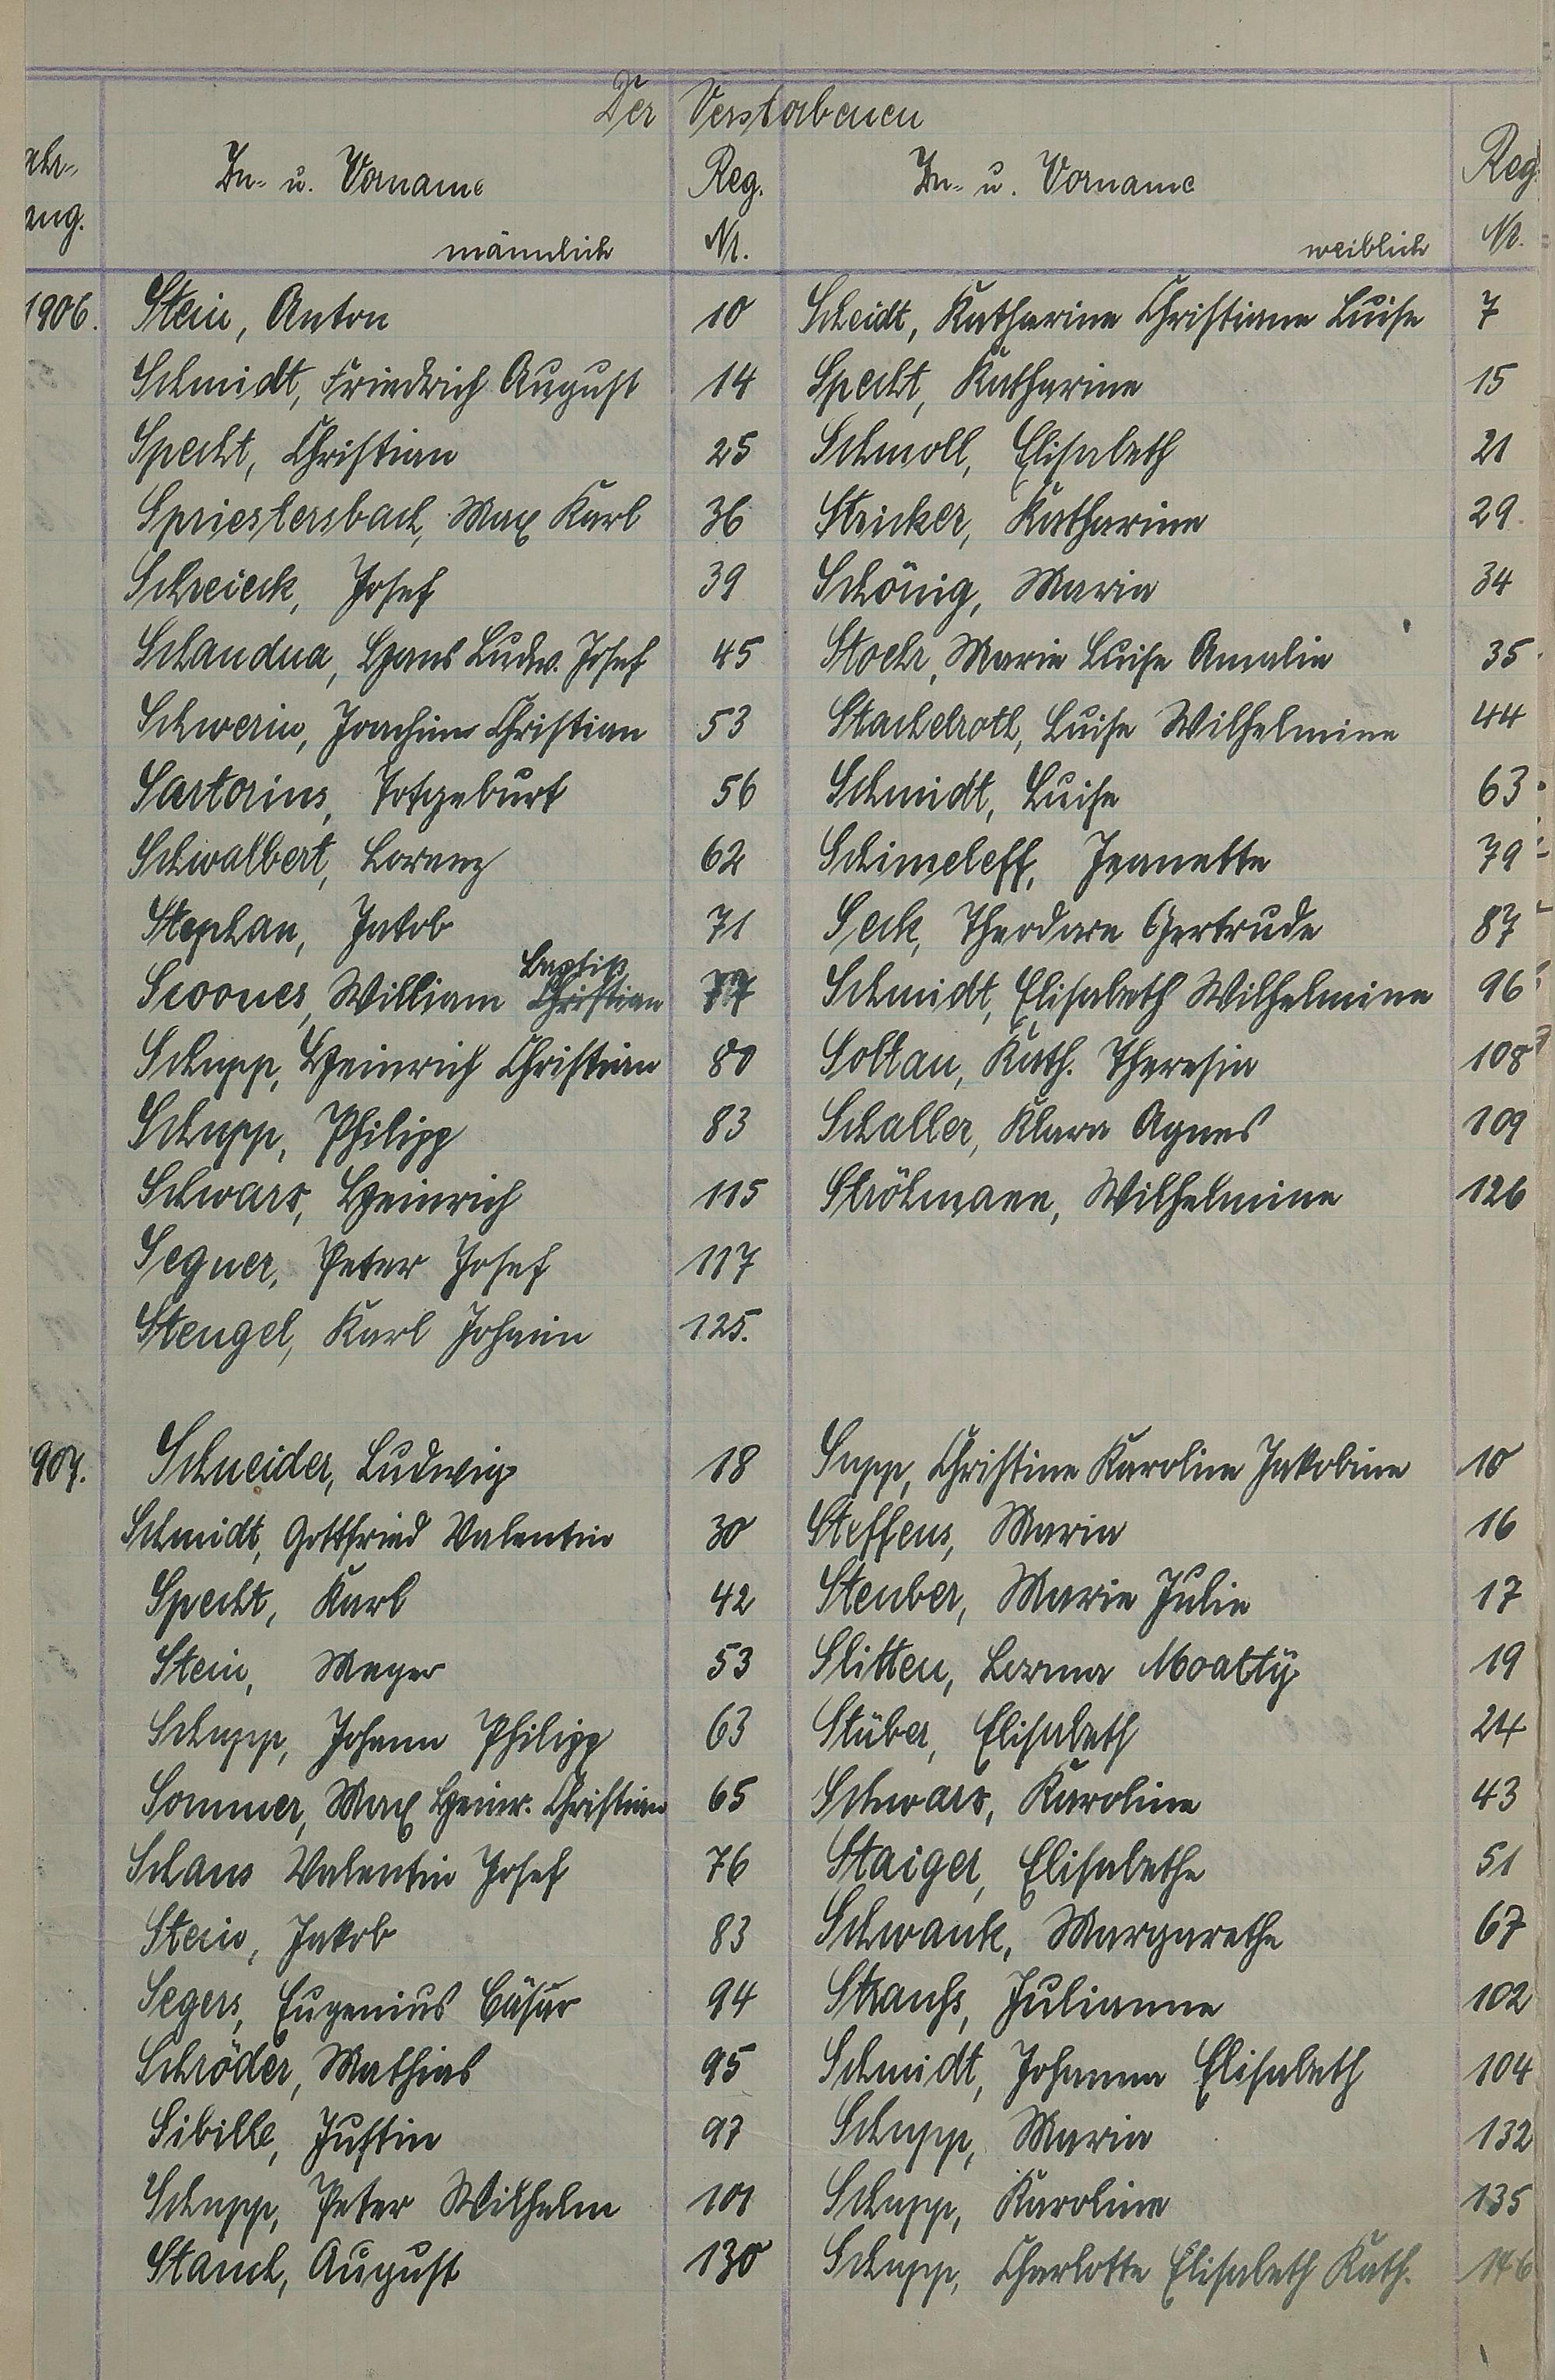 Der Verstorbenen
ahr- Zu- u. Vorname Reg. Zu- u. Vorname Reg.
ang. männlich Nr. weiblich Nr.
1906. Stein, Anton 10 Scheidt, Katharine Christiane Luise 7
Schmidt, Friedrich August 14 Specht, Katharine 15
Specht, Christian 25 Schmoll, Elisabeth 21
Spriestersbach, Max Karl 36 Stricker, Katharine 29.
Schreieck, Josef 39 Schönig, Maria 34
Schandua, Hans Ludw. Josef 45 Stoehr, Marie Luise Amalie 35
Schwerin, Joachim Christian 53 Stachelroth, Luise Wilhelmine 44
Sartorius, Totgeburt 56 Schmidt, Luise 63
Schwalbert, Lorenz 62 Schimeleff, Jeanette 79
Stephan, Jakob 71 Seck, Theodore Gertrude 87
Baptist
Scoones, William Christian 77 Schmidt, Elisabeth Wilhelmine 96
Schupp, Heinrich Christian 80 Soltau, Kath. Theresia 108
Schupp, Philipp 83 Schaller, Klara Agnes 109
Schwarz, Heinrich 115 Ströhmann, Wilhelmine 126
Segner, Peter Josef 117
Stengel, Karl Johann 125.
907. Schneider, Ludwig 18 Supp, Christine Karoline Jakobine 10
Schmidt, Gottfried Valentin 30 Steffens, Maria 16
Specht, Karl 42 Steuber, Marie Julie 17
Stein, Meyer 53 Slitten, Moatty 19
Schupp, Johann Philipp 63 Stüber, Elisabeth 24
Sommer, Max Heinr. Christian 65 Schwarz, Karoline 43
Schaus Valentin Josef 76 Staiger, Elisabethe 51
Stein, Jakob 83 Schwank, Margarethe 67
Segers, Eugenius Cäsar 94 Strauß, Julianne 102
Schröder, Mathias 95 Schmidt, Johanna Elisabeth 104
Sibille, Justin 97 Schupp, Maria 132
Schupp, Peter Wilhelm 101 Schupp, Karoline 135
Stauch, August 130 Schupp, Charlotte Elisabeth Kath. 146